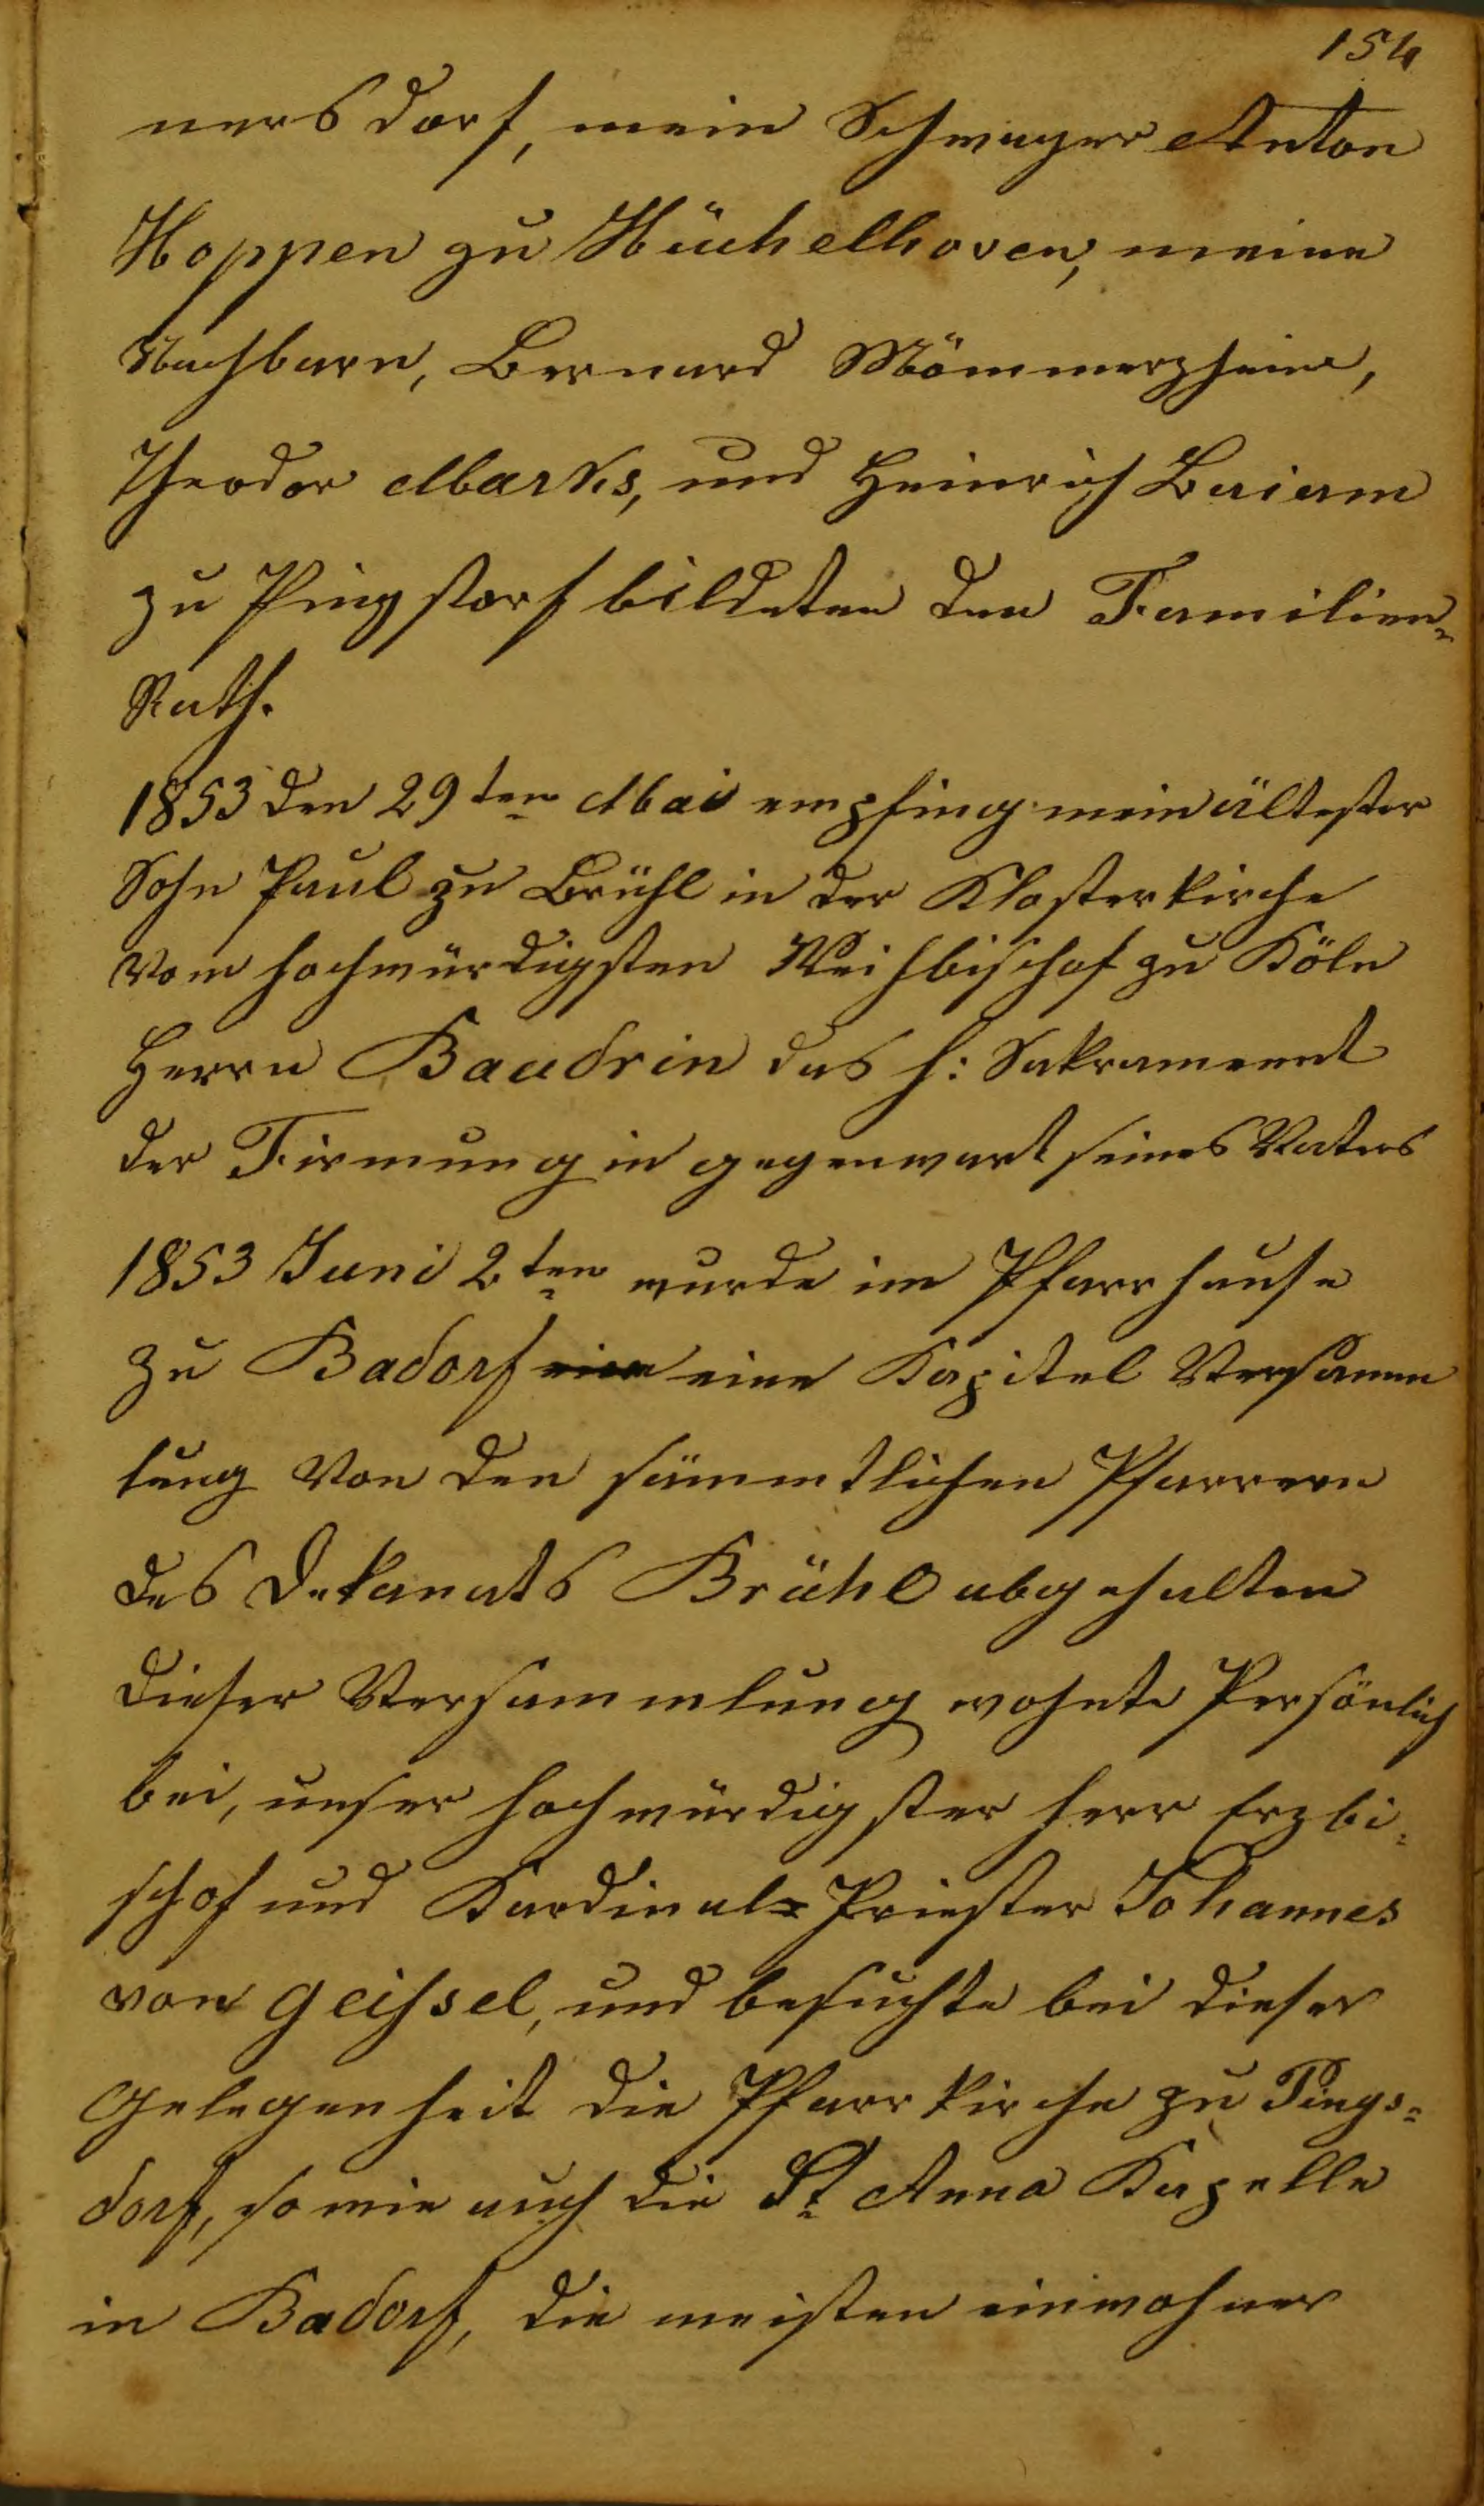 154
nersdorf, mein Schwager Anton
Hoppen zu Hüchelhoven, meine
Nachbarn, Bernard Mömmerzheim,
Theodor Marks, und Heinrich Bariam
zu Pingstorf bildeten den Familien=
Rath.
1853 den 29ten Mai empfing mein ältester
Sohn Paul zu Brühl in der Klosterkirche
vom hochwürdigsten Weihbischof zu Köln
Herrn Baudrin das h: Sakrament
der Firmung in gegenwart seines Vaters
1853 Juni 2ten wurde im Pfarrhause
zu Badorf eine eine Kapitel Versamm
lung von den sämmtlichen Pfarrern
des Dekanats Brühl abgehalten
dieser Versammlung wohnte Persönlich
bei, unser hochwürdigster Herr Erzbi=
schof und Kardinal=Priester Johannes
von Geissel, und besuchte bei dieser
Gelegenheit die Pfarrkirche zu Pings=
dorf, so wie auch die St Anna Kapelle
in Badorf, die meisten einwohner